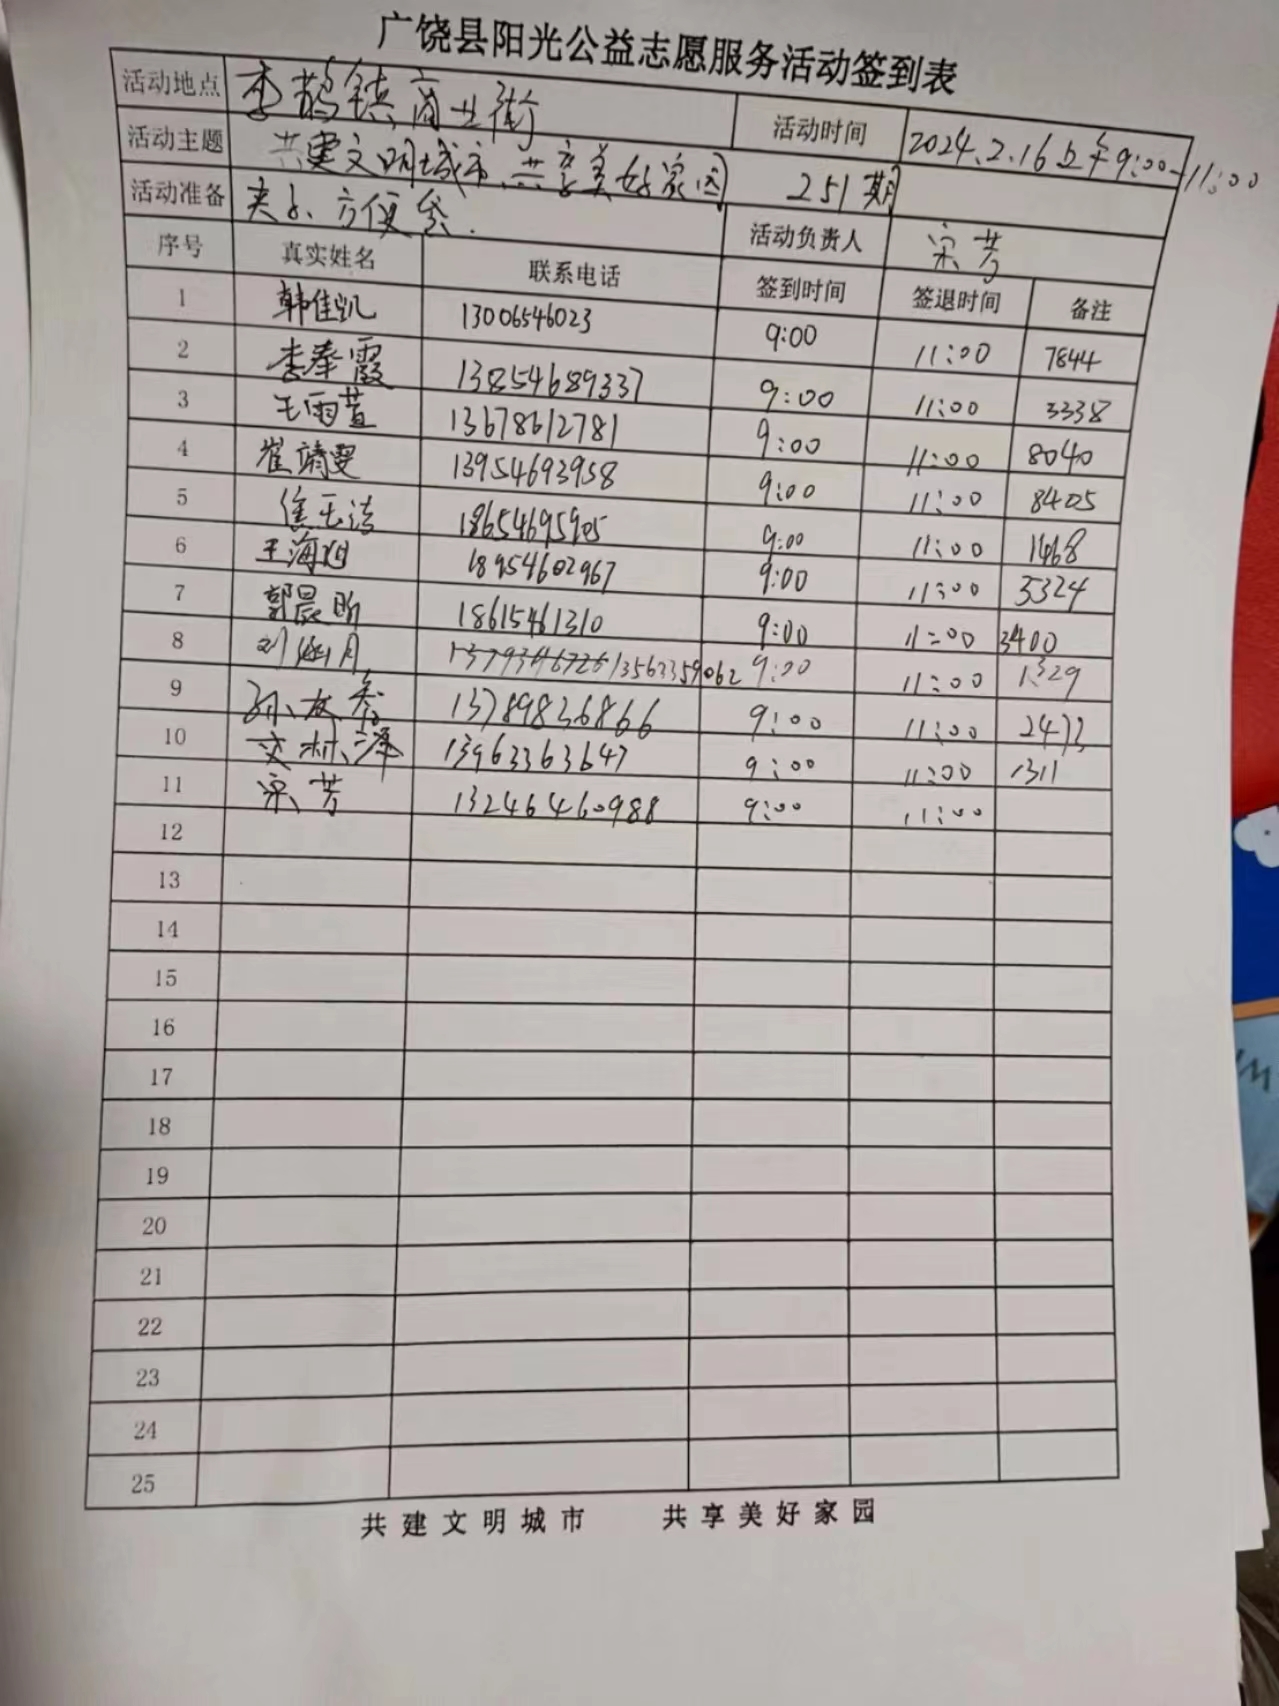 广饶县阳光公益志愿服务活动签到表
活动地点 李鹊镇商业街 活动时间 2024.2.16上午9:00-11:00
活动主题 共建文明城市、共享美好家园 251期
活动准备 夹子、方便袋. 活动负责人 宋芳
序号 真实姓名 联系电话 签到时间 签退时间 备注
1 韩佳凯 13006546023 9:00 11:00 7844
2 李奉霞 13854689337 9:00 11:00 3338
3 王雨萱 13678612781 9:00 11:00 8040
4 崔靖雯 13954693958 9:00 11:00 8405
5 徐玉洁 18654695905 9:00 11:00 1468
6 王海旭 18954602967 9:00 11:00 5324
7 郭晨昕 18615461310 9:00 11:00 3400
8 刘 月 13563359062 9:00 11:00 1329
9 孙友 13789836866 9:00 11:00 2473
10 文林泽 13963363647 9:00 11:00 1311
11 宋芳 13246460988 9:00 11:00
12
13
14
15
16
17
18
19
20
21
22
23
24
25
共建文明城市 共享美好家园